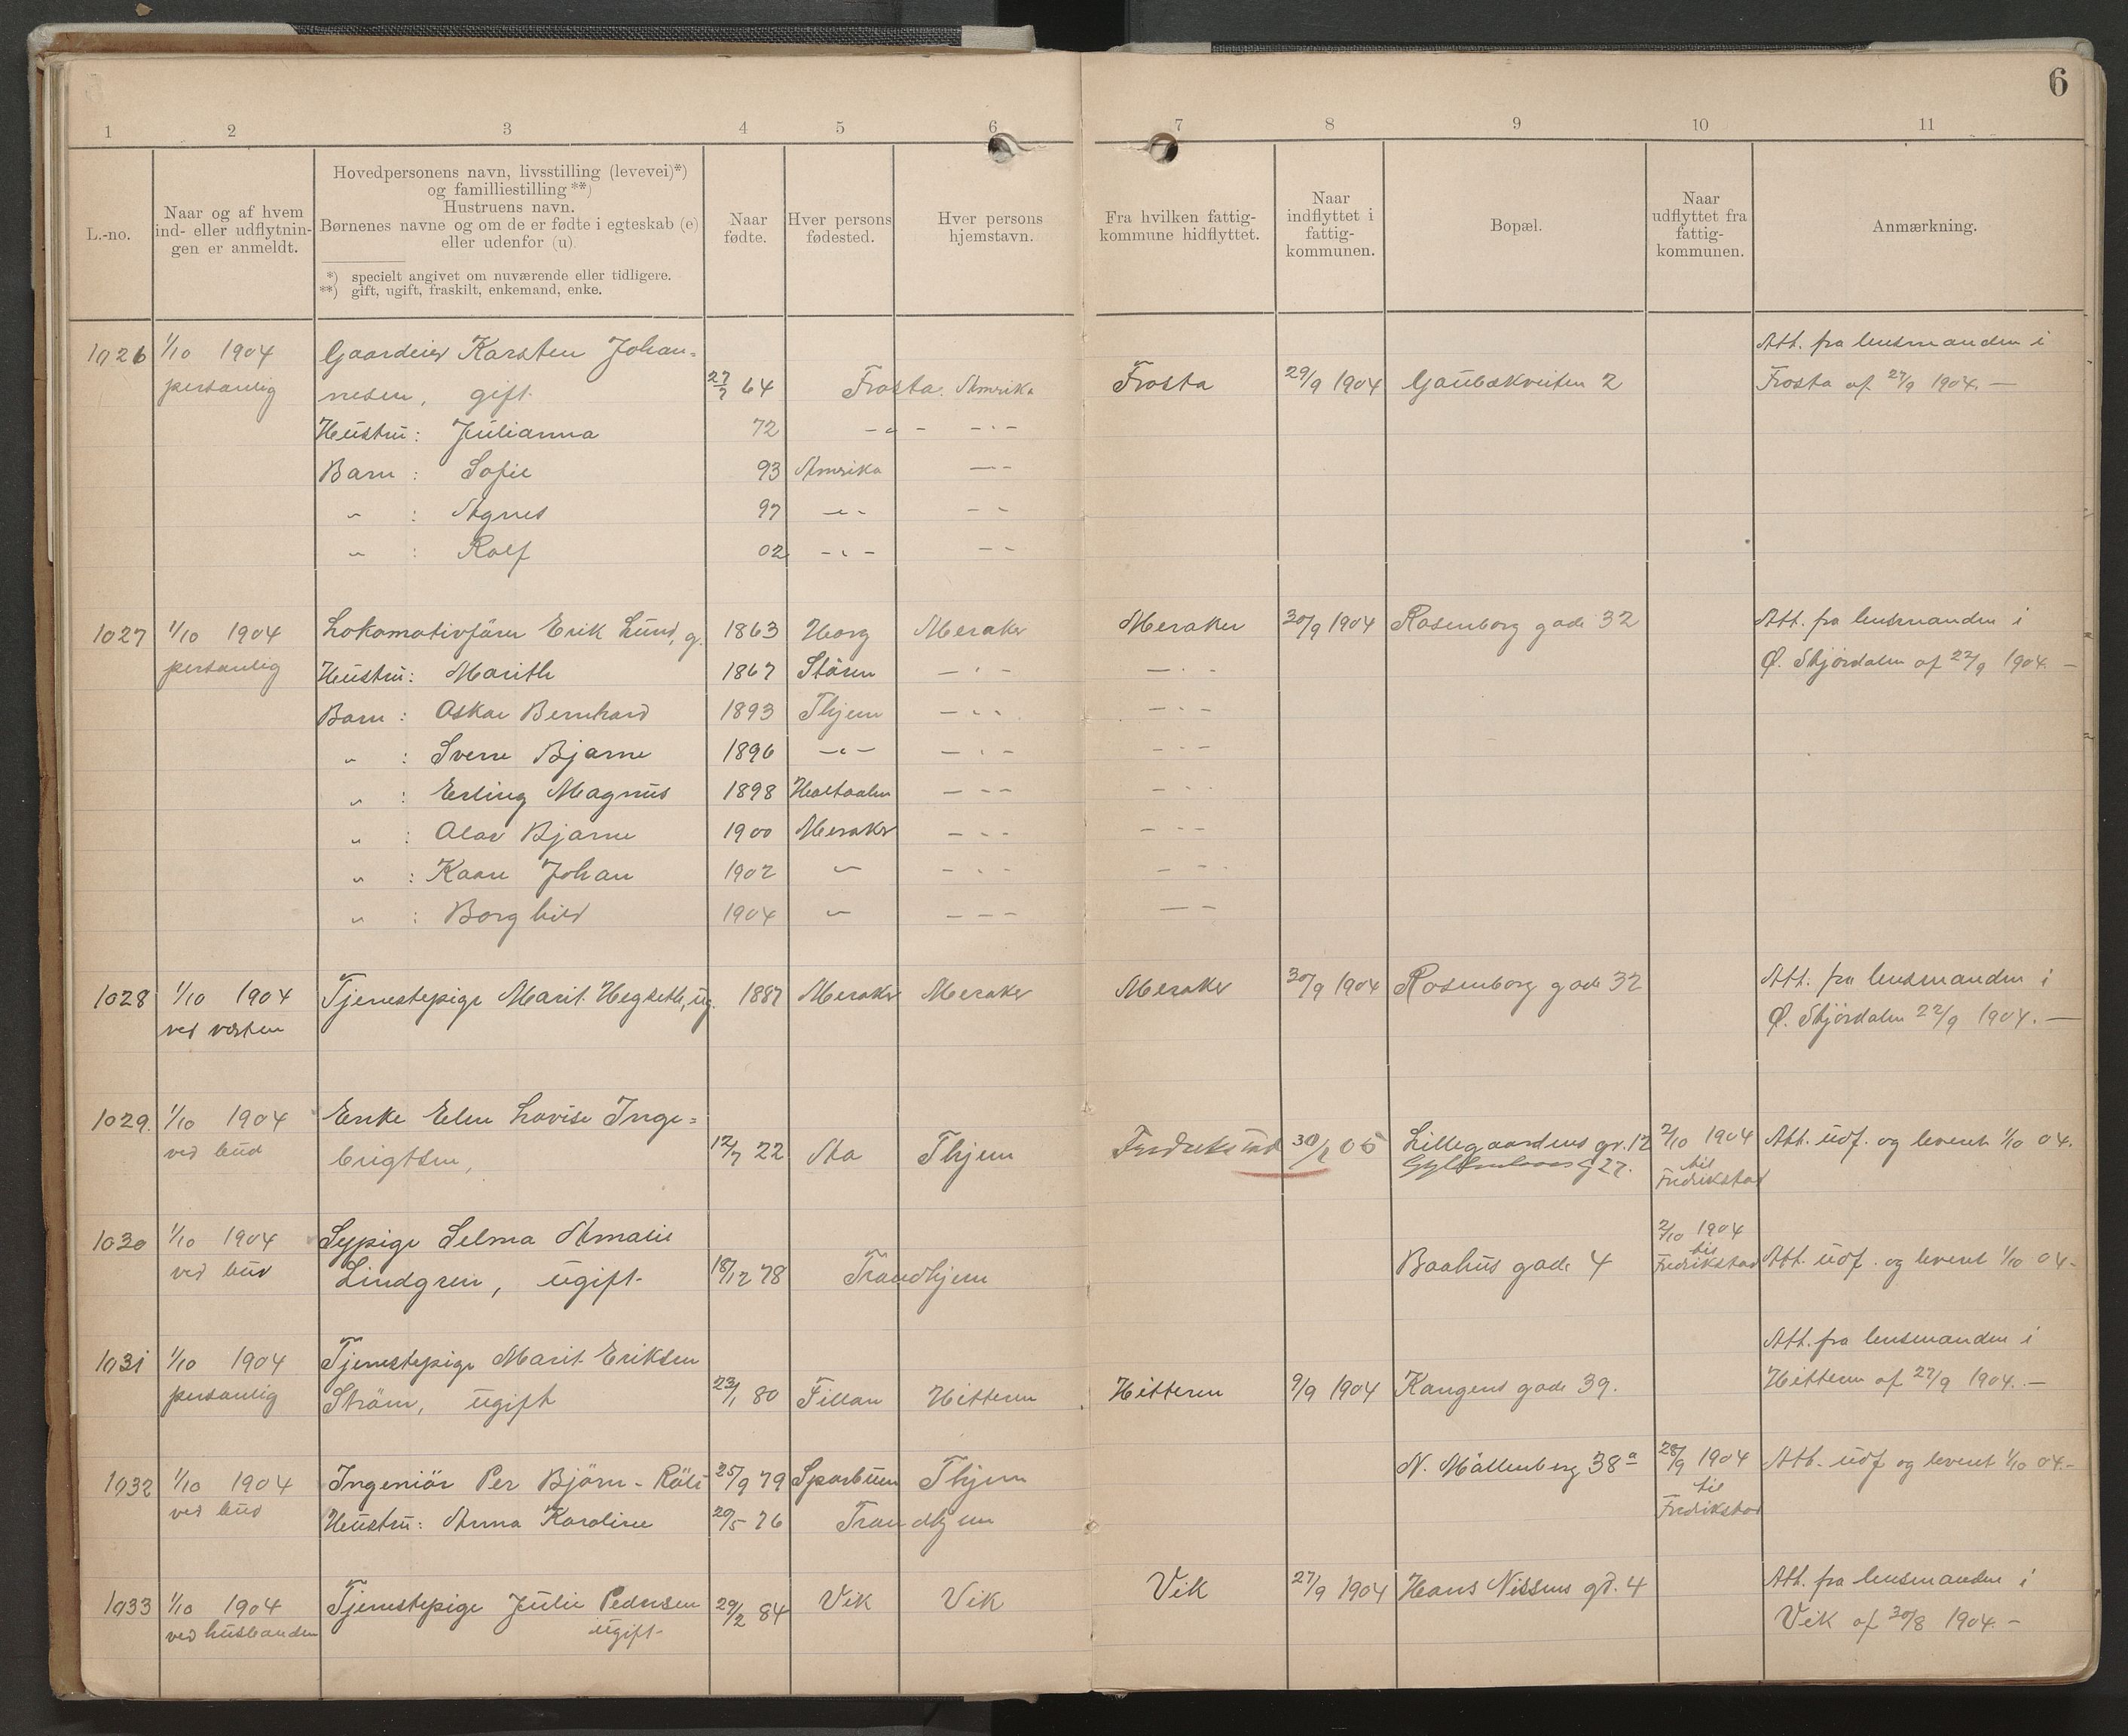 6
1 2 3 4 5 6 7 8 9 10 11
L.-no.
Naar og af hvem
ind- eller udflytnin-
gen er anmeldt.
Hovedpersonens navn, livsstilling (levevei)*)
og familliestilling **)
Hustruens navn.
Børnenes navne og om de er fødte i egteskab (e)
eller udenfor (u).
*) specielt angivet om nuværende eller tidligere.
**) gift, ugift, fraskilt, enkemand, enke.
Naar
fødte.
Hver persons
fødested.
Hver persons
hjemstavn.
Fra hvilken fattig-
kommune hidflyttet.
Naar
indflyttet i
fattig-
kommunen.
Bopæl.
Naar
udflyttet fra
fattig-
kommunen.
Anmærkning.
1026 1/10 1904 Gaardeier Karsten Johan= Att. fra lensmanden i
personlig nesen, gift 27/7 64 Frosta. Amerika Frosta 29/9 1904 Gaubækveiten 2 Frosta af 27/9 1904. —
Hustru: Julianna 72 - " - - " -
Barn : Sofie 93 Amerika - " -
" : Agnes 97 - " - - " -
" : Rolf 02 - " - - " -
1027 1/10 1904 Lokomotivförer Erik Lund, g. 1863 Horg Meraker Meraker 30/9 1904 Rosenborg gade 32 Att. fra lensmanden i
personlig Hustru: Marith 1867 Stören - " - - " - Ø. Stjördalen af 22/9 1904. —
Barn : Oskar Bernhard 1893 Thjem - " - - " -
" : Sverre Bjarne 1896 - " - - " - - " -
" : Erling Magnus 1898 Holtaalen - " - - " -
" : Olav Bjarne 1900 Meraker - " - - " -
" : Kaare Johan 1902 " - " - - " -
" : Borghild 1904 " - " - - " -
1028 1/10 1904 Tjenestepige Marit Hegseth, ug. 1887 Meraker Meraker Meraker 30/9 1904 Rosenborg gade 32 Att. fra lensmanden i
ved værten Ø. Stjördalen 22/9 1904. —
1029. 1/10 1904 Enke Elen Lovise Inge=
ved bud brigtsen, 12/7 22 Aa Thjem 30/ 05 Lillegaardens gr. 12 2/10 1904 Att. udf. og leveret 1/10 04.
27. til
Fredrikstad
1030 1/10 1904 Sypige Selma Amalie 2/10 1904
ved bud Lindgren, ugift 18/12 78 Trondhjem Baahus gade 4 til Fredrikstad Att. udf. og leveret 1/10 04-
1031 1/10 1904 Tjenestepige Marit Eriksen Att. fra lensmanden i
personlig Ström, ugift 23/1 80 Fillan Hitteren Hitteren 9/9 1904 Kongens gade 39. Hitteren af 27/9 1904. —
1032 1/10 1904 Ingeniör Per Björn- 25/9 79 Sparbuen Thjem N. Möllenberg 38 a 28/9 1904 Att. udf og leveret 1/10 04.-
ved bud Hustru: Anna Karoline 20/5 76 Trondhjem til
Fredrikstad
1033 1/10 1904 Tjenestepige Julie Pedersen 29/2 84 Vik Vik Vik 27/9 1904 Hans Nissens gd. 4 Att. fra lensmanden i
ved husbonden ugift Vik af 30/8 1904. -